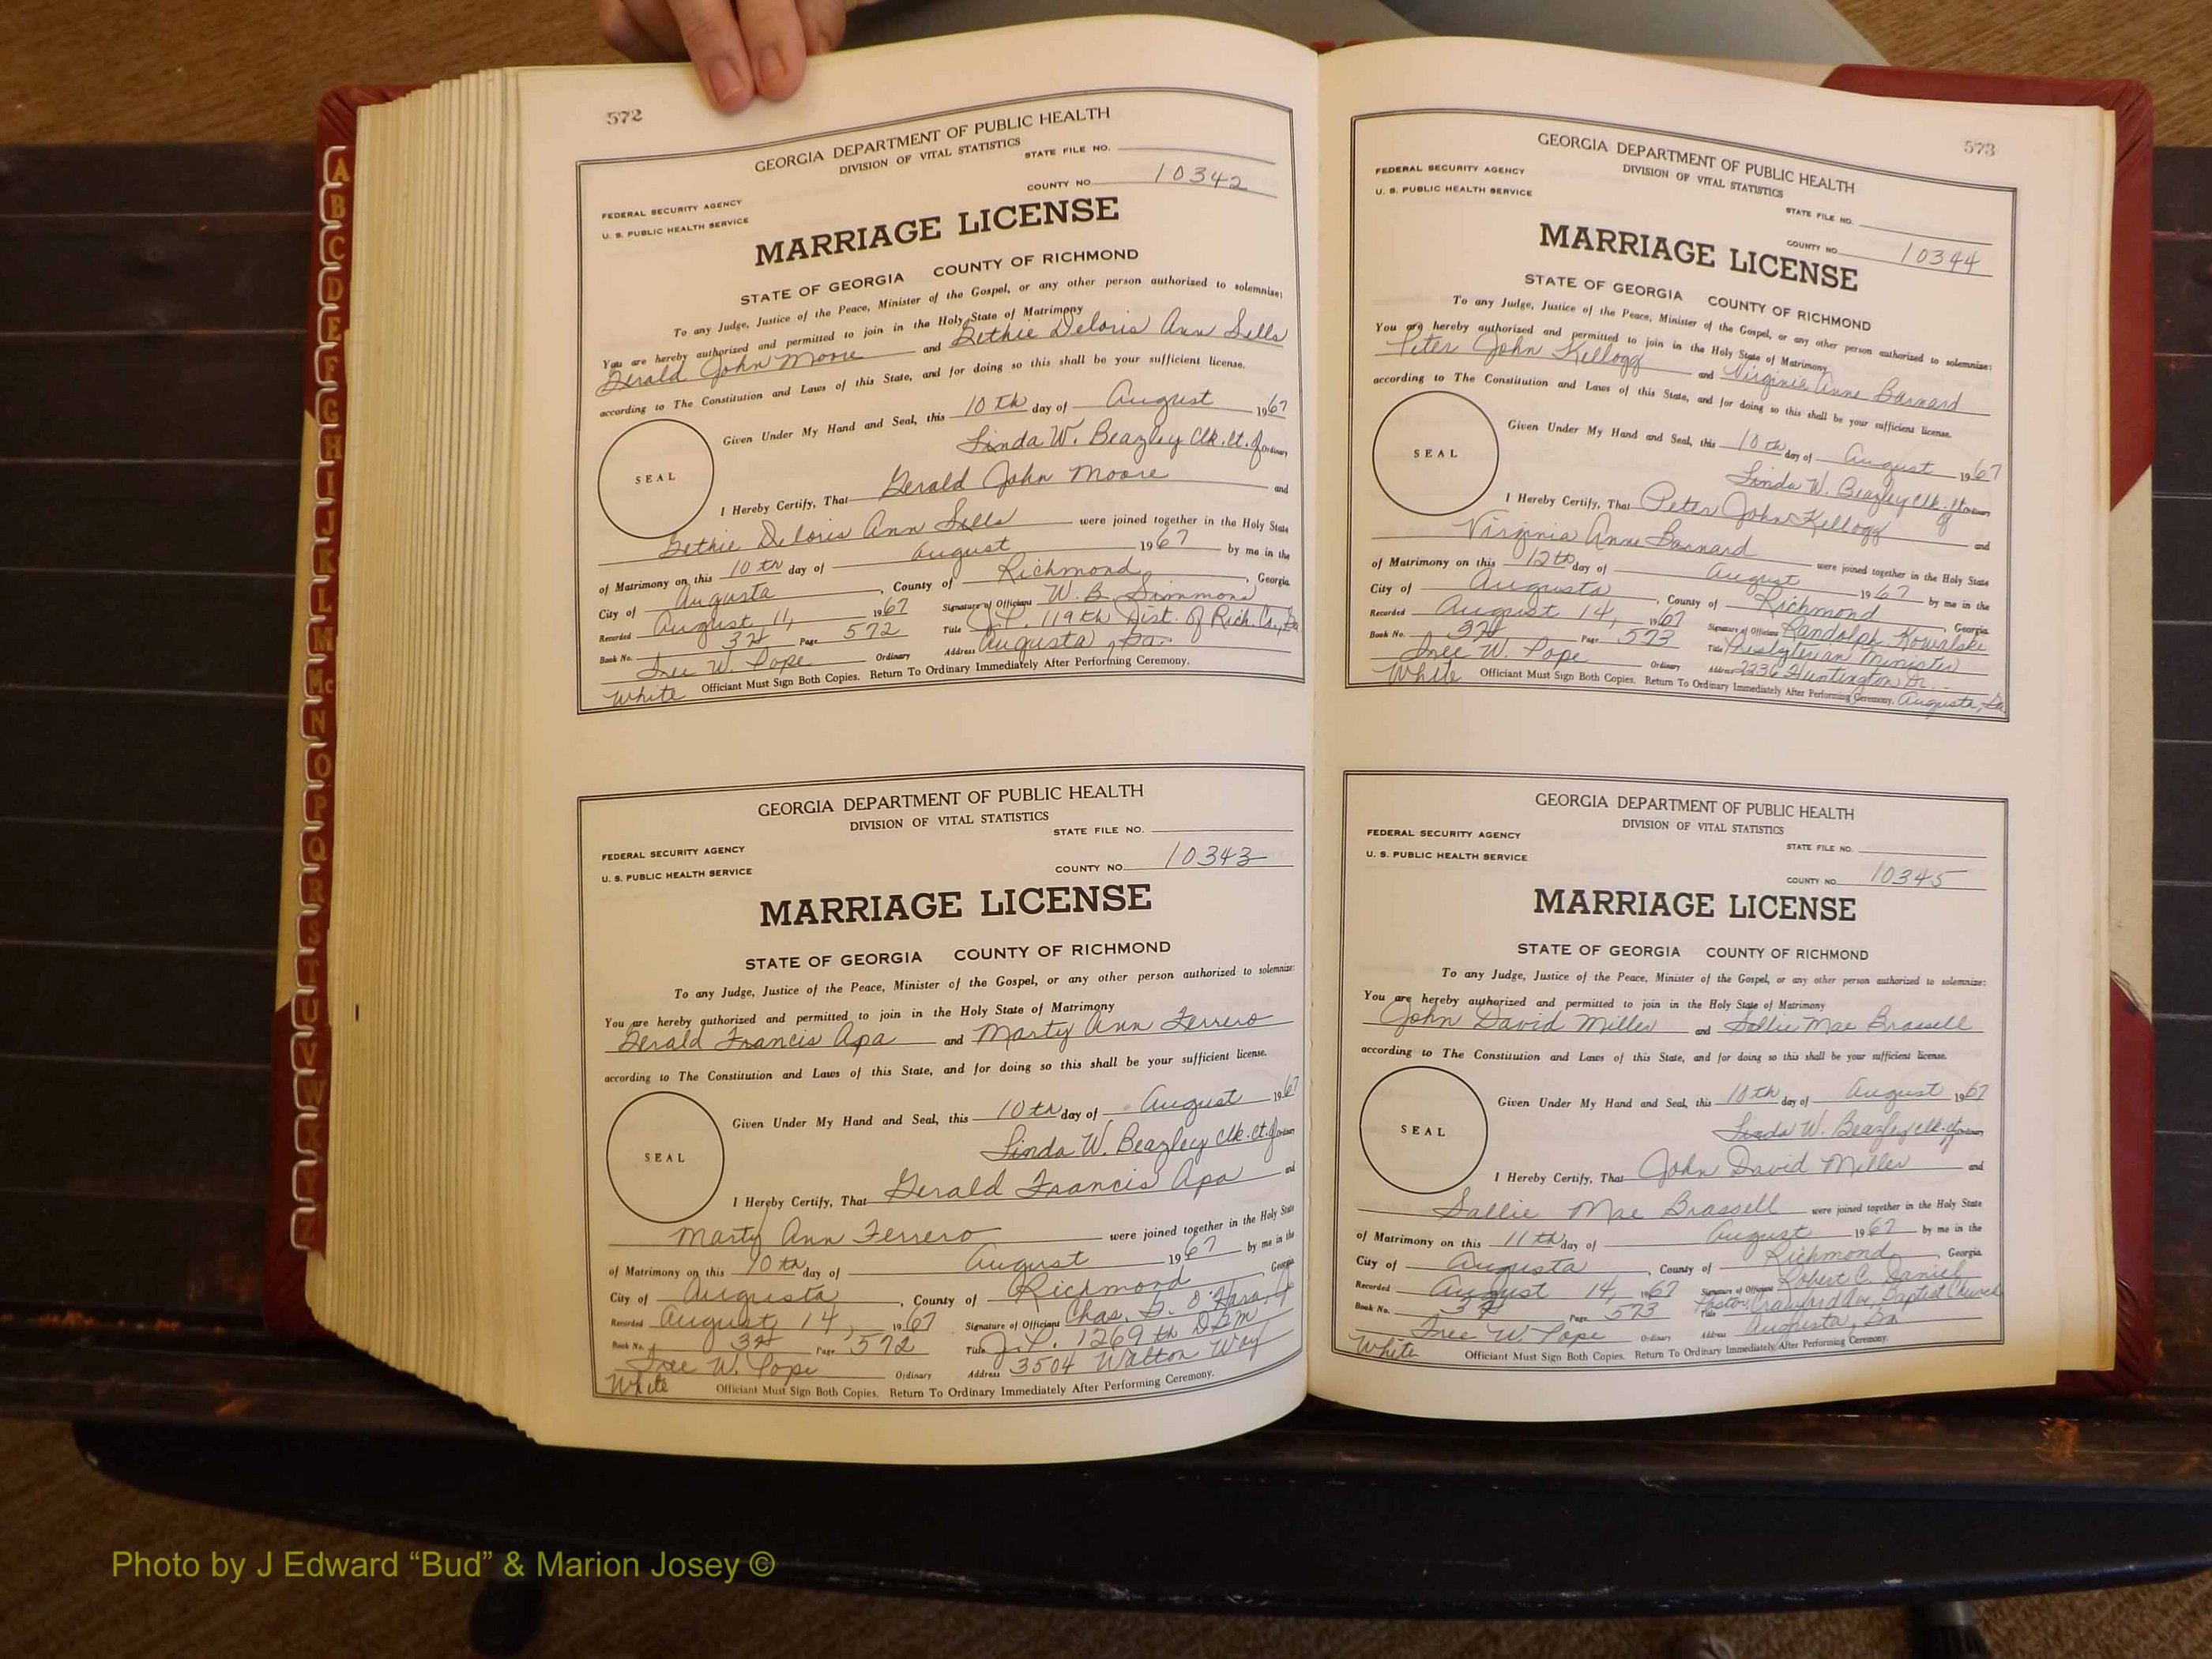 572
GEORGIA DEPARTMENT OF PUBLIC HEALTH
DIVISION OF VITAL STATISTICS
STATE FILE NO.
COUNTY NO. 10342
FEDERAL SECURITY AGENCY
U. S. PUBLIC HEALTH SERVICE
MARRIAGE LICENSE
STATE OF GEORGIA COUNTY OF RICHMOND
To any Judge, Justice of the Peace, Minister of the Gospel, or any other person authorized to solemnize:
You are hereby authorized and permitted to join in the Holy State of Matrimony
Gerald John Moore and Bethie Deloris Ann Sells
according to The Constitution and Laws of this State, and for doing so this shall be your sufficient license.
Given Under My Hand and Seal, this 10th day of August 1967
Linda W. Beazley Clk. Ct. of Ordinary
SEAL
I Hereby Certify, That Gerald John Moore and
Bethie Deloris Ann Sells were joined together in the Holy State
of Matrimony on this 10th day of August 1967 by me in the
City of Augusta, County of Richmond, Georgia
Recorded August 11, 1967 Signature of Officiant W. B. Simmons
Book No. Page 572 Title J.P. 119th Dist. of Rich. Co., Ga
Ordinary Address Augusta, Ga.
White Officiant Must Sign Both Copies. Return To Ordinary Immediately After Performing Ceremony.
GEORGIA DEPARTMENT OF PUBLIC HEALTH
DIVISION OF VITAL STATISTICS
STATE FILE NO.
FEDERAL SECURITY AGENCY
U. S. PUBLIC HEALTH SERVICE
COUNTY NO. 10343
MARRIAGE LICENSE
STATE OF GEORGIA COUNTY OF RICHMOND
To any Judge, Justice of the Peace, Minister of the Gospel, or any other person authorized to solemnize:
You are hereby authorized and permitted to join in the Holy State of Matrimony
Gerald Francis Apa and Marty Ann Ferrero
according to The Constitution and Laws of this State, and for doing so this shall be your sufficient license.
Given Under My Hand and Seal, this 10th day of August 1967
Linda W. Beazley Clk. Ct. of Ordinary
SEAL
I Hereby Certify, That Gerald Francis Apa and
Marty Ann Ferrero were joined together in the Holy State
of Matrimony on this 10th day of August 1967 by me in the
City of Augusta, County of Richmond, Georgia
Recorded August 14, 1967 Signature of Officiant Chas. O'Hara
Book No. Page 572 Title J.P. 1269th
W. Pope Ordinary Address 3504 Walton Way
White Officiant Must Sign Both Copies. Return To Ordinary Immediately After Performing Ceremony.
573
GEORGIA DEPARTMENT OF PUBLIC HEALTH
DIVISION OF VITAL STATISTICS
FEDERAL SECURITY AGENCY
U. S. PUBLIC HEALTH SERVICE
STATE FILE NO.
COUNTY NO. 10344
MARRIAGE LICENSE
STATE OF GEORGIA COUNTY OF RICHMOND
To any Judge, Justice of the Peace, Minister of the Gospel, or any other person authorized to solemnize:
You are hereby authorized and permitted to join in the Holy State of Matrimony
Peter John Kellogg and Virginia Anne Barnard
according to The Constitution and Laws of this State, and for doing so this shall be your sufficient license.
Given Under My Hand and Seal, this 10th day of August 1967
Linda W. Beazley Clk. Ct. of Ordinary
SEAL
I Hereby Certify, That Peter John Kellogg and
Virginia Anne Barnard were joined together in the Holy State
of Matrimony on this 12th day of August 1967 by me in the
City of Augusta, County of Richmond, Georgia
Recorded August 14, 1967 Signature of Officiant Randolph Kowalski
Book No. Page 573 Title Presbyterian Minister
W. Pope Ordinary Address 2236 Huntington Dr.
White Officiant Must Sign Both Copies. Return To Ordinary Immediately After Performing Ceremony. Augusta, Ga.
GEORGIA DEPARTMENT OF PUBLIC HEALTH
DIVISION OF VITAL STATISTICS
FEDERAL SECURITY AGENCY
U. S. PUBLIC HEALTH SERVICE
STATE FILE NO.
COUNTY NO. 10345
MARRIAGE LICENSE
STATE OF GEORGIA COUNTY OF RICHMOND
To any Judge, Justice of the Peace, Minister of the Gospel, or any other person authorized to solemnize:
You are hereby authorized and permitted to join in the Holy State of Matrimony
John David Miller and Sallie Mae Brassell
according to The Constitution and Laws of this State, and for doing so this shall be your sufficient license.
Given Under My Hand and Seal, this 10th day of August 1967
Linda W. Beazley Clk. Ct. of Ordinary
SEAL
I Hereby Certify, That John David Miller and
Sallie Mae Brassell were joined together in the Holy State
of Matrimony on this 11th day of August 1967 by me in the
City of Augusta, County of Richmond, Georgia
Recorded August 14, 1967 Signature of Officiant Robert C. Daniel
Book No. Page 573 Title Pastor, Crawford Ave, Baptist Church
W. Pope Ordinary Address Augusta, Ga
White Officiant Must Sign Both Copies. Return To Ordinary Immediately After Performing Ceremony.
A
B
C
D
E
F
G
H
I
J
K
L
M
Mc
N
O
P
Q
R
S
T
U
V
W
Photo by J Edward “Bud” & Marion Josey ©